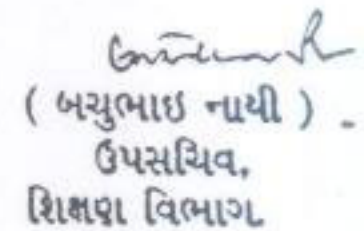 ( બચુભાઇ નાયી )
ઉપસચિવ,
શિક્ષણ વિભાગ